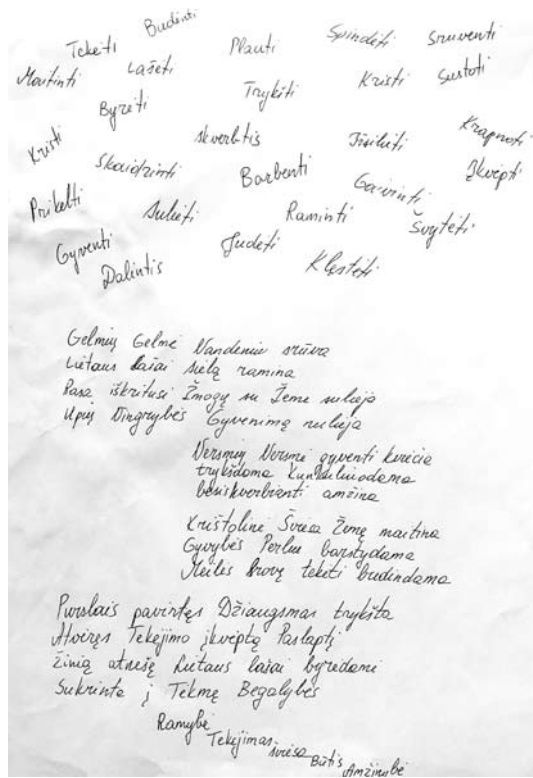 Budinti
Tekėti Plauti Spindėti Sruventi
Maitinti Lašėti Trykšti Kristi Sustoti
Byrėti
Kristi skverbtis Įsilieti Krapnoti
Skaidrinti Barbenti Gaivinti Įkvėpti
Prikelti sulieti Raminti Švytėti
Gyventi Judėti
Dalintis Klęstėti
Gelmių Gelmė Vandeniu srūva
Lietaus lašai sielą ramina
Rasa iškritusi Žmogų su Žeme sulieja
Upių Vingrybės Gyvenimą nulieja
Versmių Versmė gyventi kviečia
trykšdama Kunkuliuodama
besiskverbianti amžina
Krištolinė Šviesa Žemę maitina
Gyvybės Perlus barstydama
Meilės Srovę tekėti budindama
Purslais pavirtęs Džiaugsmas trykšta
Atvėręs Tekėjimo įkvėptą Paslaptį
Žinią atnešę Lietaus lašai byrėdami
Sukrinta į Tėkmę Begalybės
Ramybė
Tekėjimas
šviesa
Būtis
Amžinybė